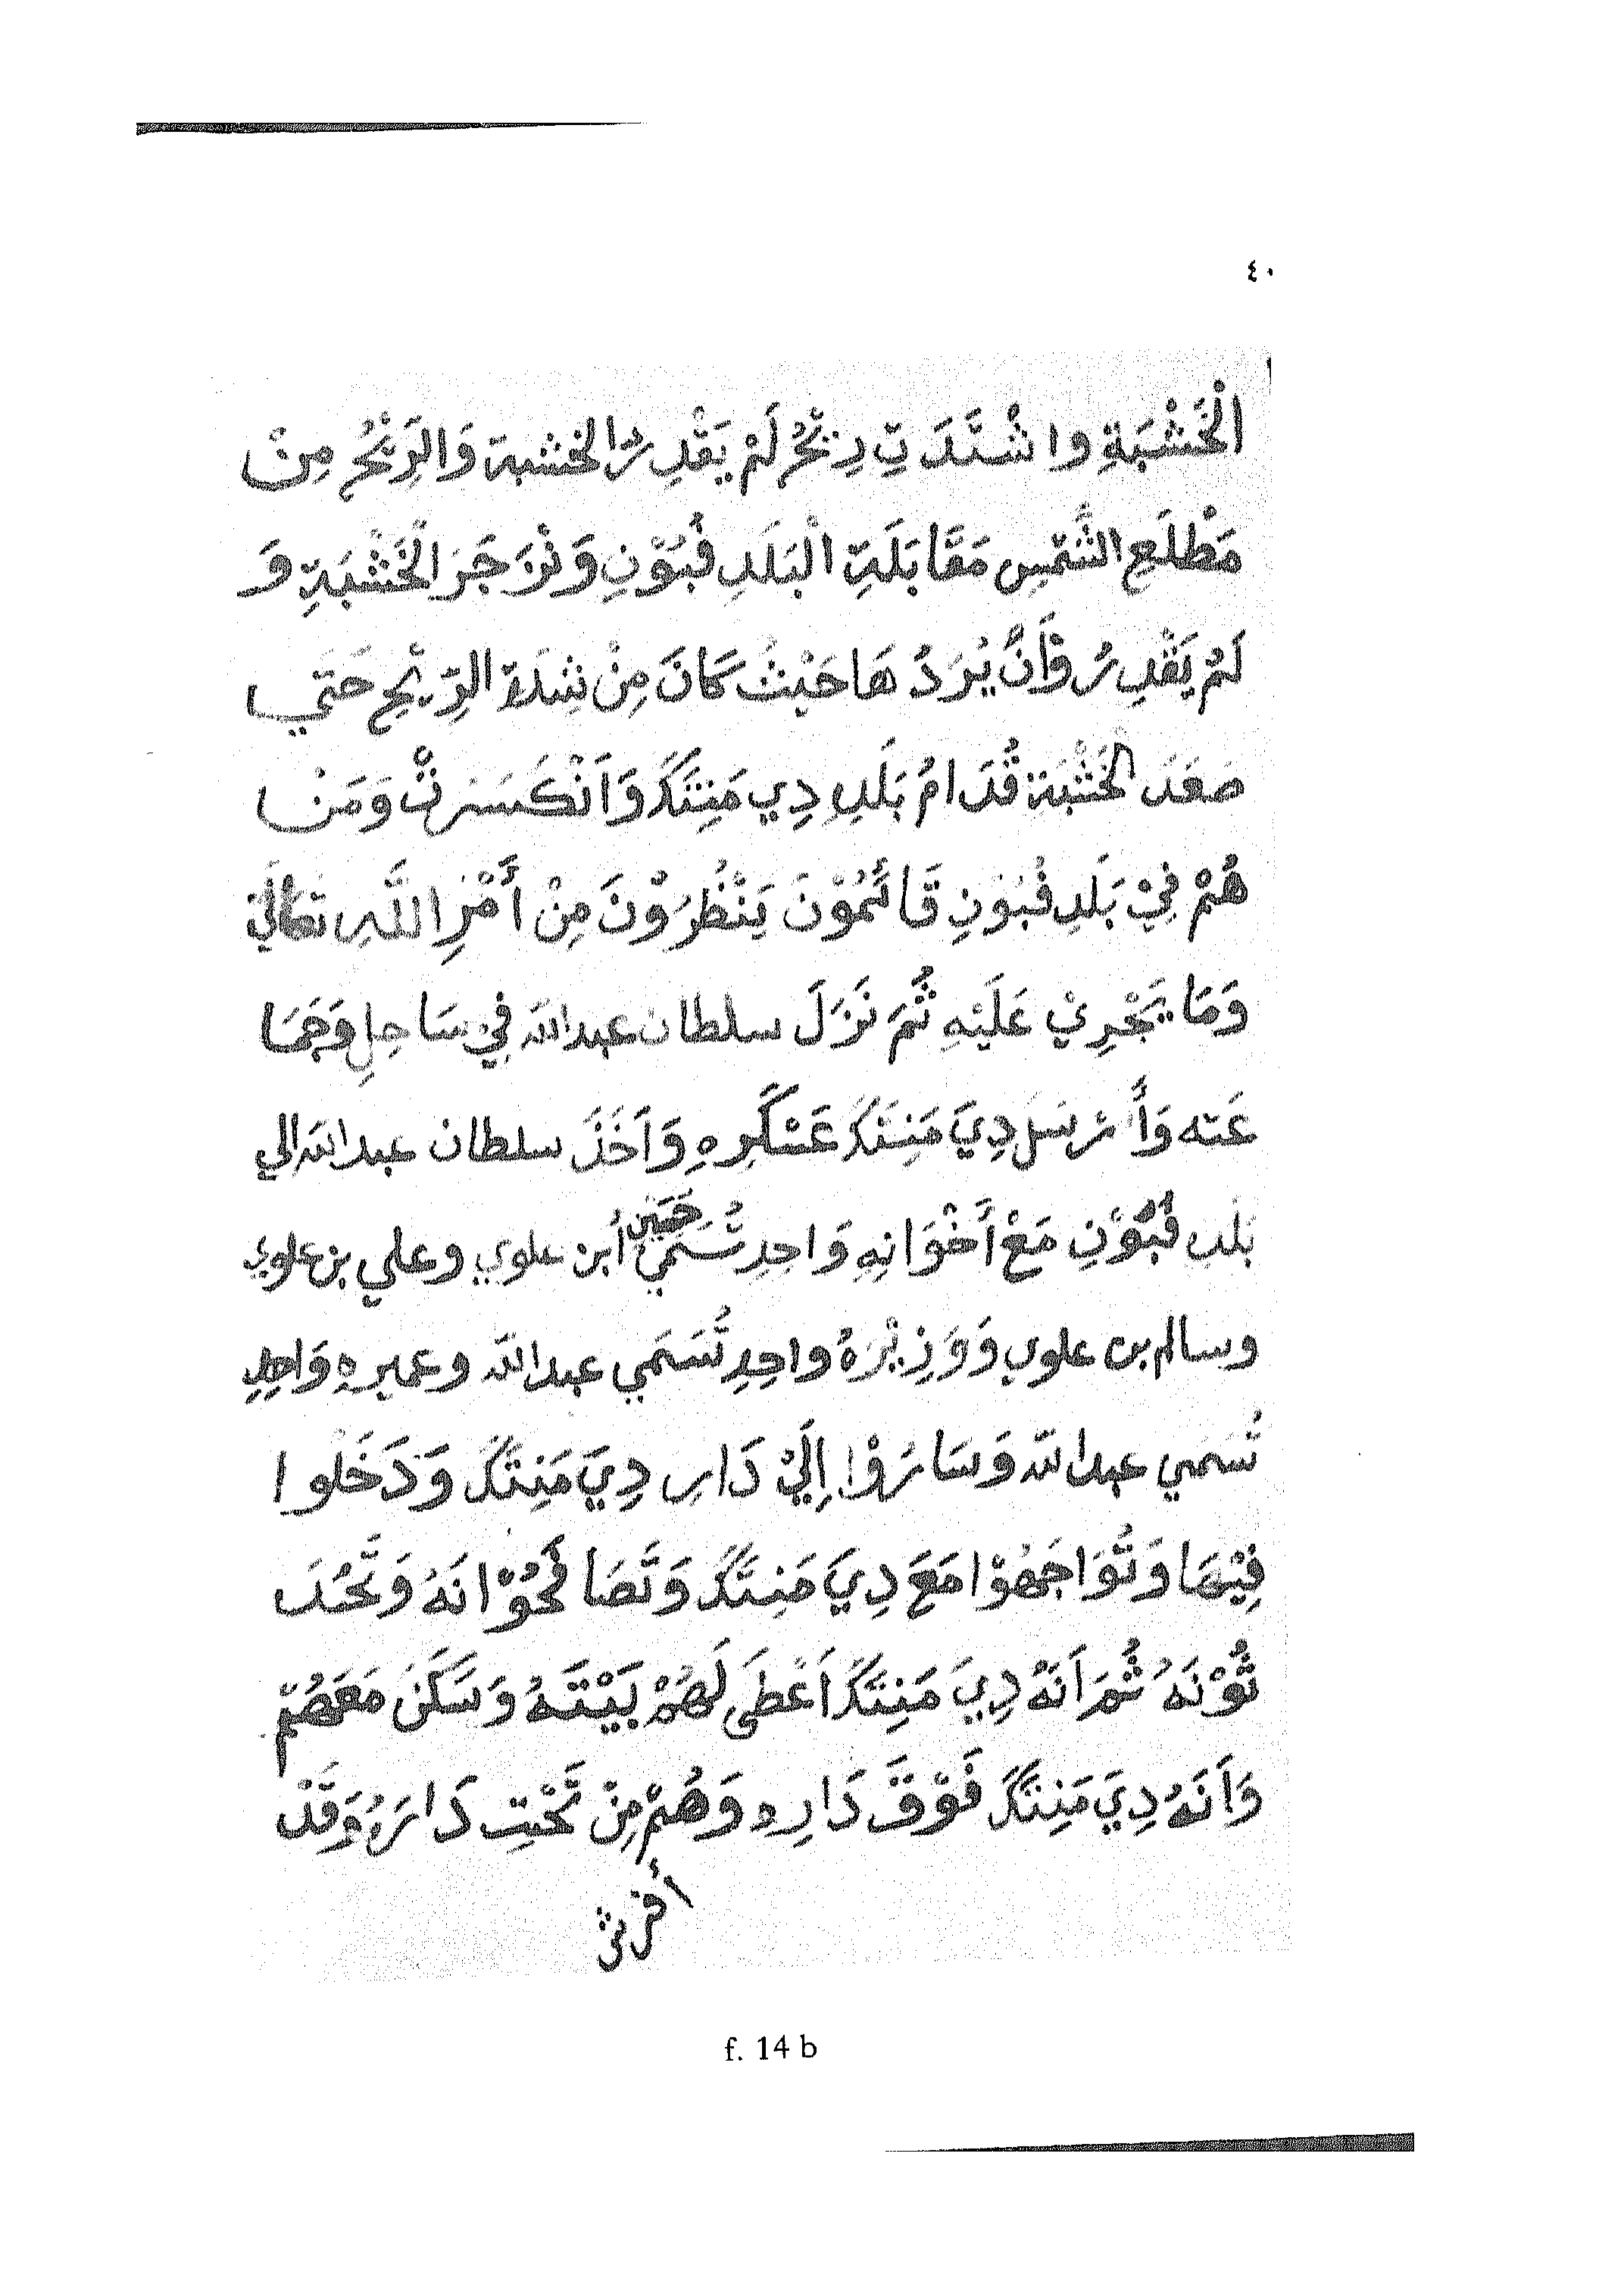 ٤٠
الْخَشْبَةِ وا شْتَدَتِ رِيْحُ لَمْ يَقْدِرُ الخشبة وَالرِيْحُ مِنْ
مَطْلَعِ الشَّمْسِ مَقَابَلَةِ الْبَلَدِ فُبُوْنِ وَنْزَجَرَ الْخَشْبَةِ وَ
لَمْ يَقْدِرُوْ أَنْ يُرَدُ هَا حَيْثُ كَانَ مِنْ شِدَةِ الرِّيْحِ حَتَي
صَعَدَ الْخَشْبَة قُدَامُ بَلَدِ دِي مَنِتَكَ وَاَنْكَسَرَتْ وَمَنْ
هُمْ فِيْ بَلَدِ فُبُوْنِ قَائمُوْنَ يَنْظُرُوْنَ مِنْ أَمْرِ اللَّهِ تعَالَي
وَمَا يَجْرِيْ عَلَيْهِ ثُمَ نَزَلَ سلطان عبدالله فِي سَاحِلِ وَجَمَا
عَته وَأَرْسَلَ دِيَ مَنِتَكَ عَسْكَرِهِ وَاَخَذَ سلطان عبدالله الي
بَلَدِ فُبُوْنِ مَعْ أَخْوَانِهِ وَاحِدِ تُسَمَي حَسَين أُبن علوي وعلي بن علوي
وسالم بن علوي وَوَزِيْرَهُ واحِدِ تُسَمَي عبدالله وعميرهِ وَاحِدِ
تُسَمَي عبدالله وَسَارُوْا إِلَيْ دَارِ دِيَ مَنِتَكَ وَدَخَلُوا
فِيْهَا وَتُوَاجَهُوْا مَعَ دِيَ مَنِتَكَ وَتَصَافَحُوْا نَهُ وَتَحُدَ
ثُوْنَهُ ثُمَ اَنَهُ دِيَ مَنِتَكَ اَعْطَى لَهُمْ بَيْتَهُ وَسَكَنَ مَعَهُمْ
وَاَنَهُ دِيَ مَنِتَكَ فَوْقَ دَارِهِ وَهُمْ مِنْ تَحْتِ دَارَهُ وَقَدْ
f. 14 b